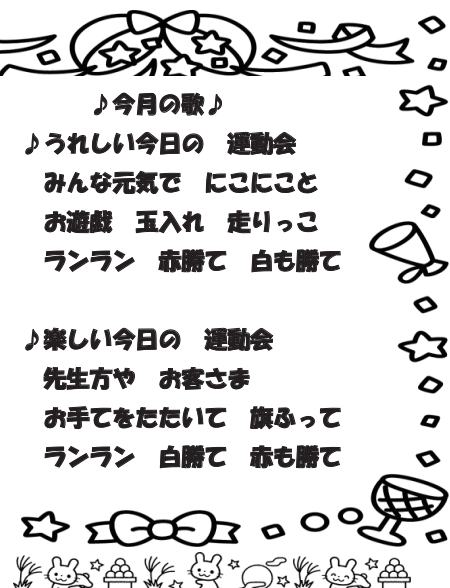 ♪今月の歌♪
♪うれしい今日の　運動会
みんな元気で　にこにこと
お遊戯　玉入れ　走りっこ
ランラン　赤勝て　白も勝て
♪楽しい今日の　運動会
先生方や　お客さま
お手てをたたいて　旗ふって
ランラン　白勝て　赤も勝て